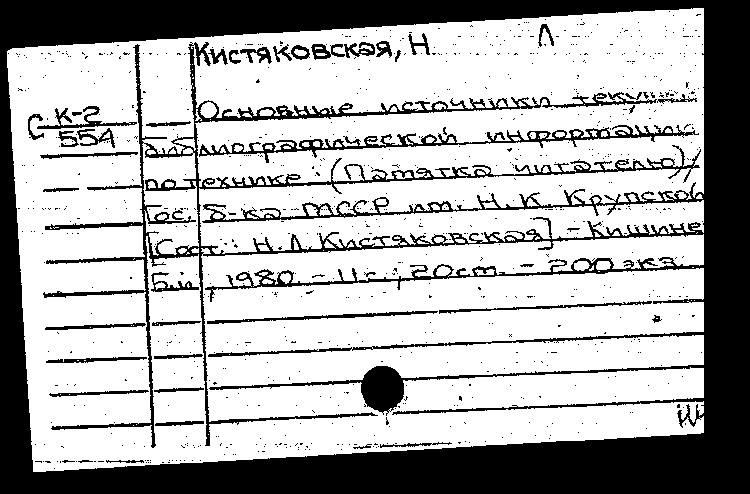 Кистяковская, Н. Л
С К-2
554
Основные источники текущей
библиографической информации
по технике: (Памятка читателю)/
Гос. б-ка МССР им. Н. К. Крупской
[Сост.: Н. Л. Кистяковская]. - Кишине
Б.и., 1980. - 11с.; 20см. - 200 экз.